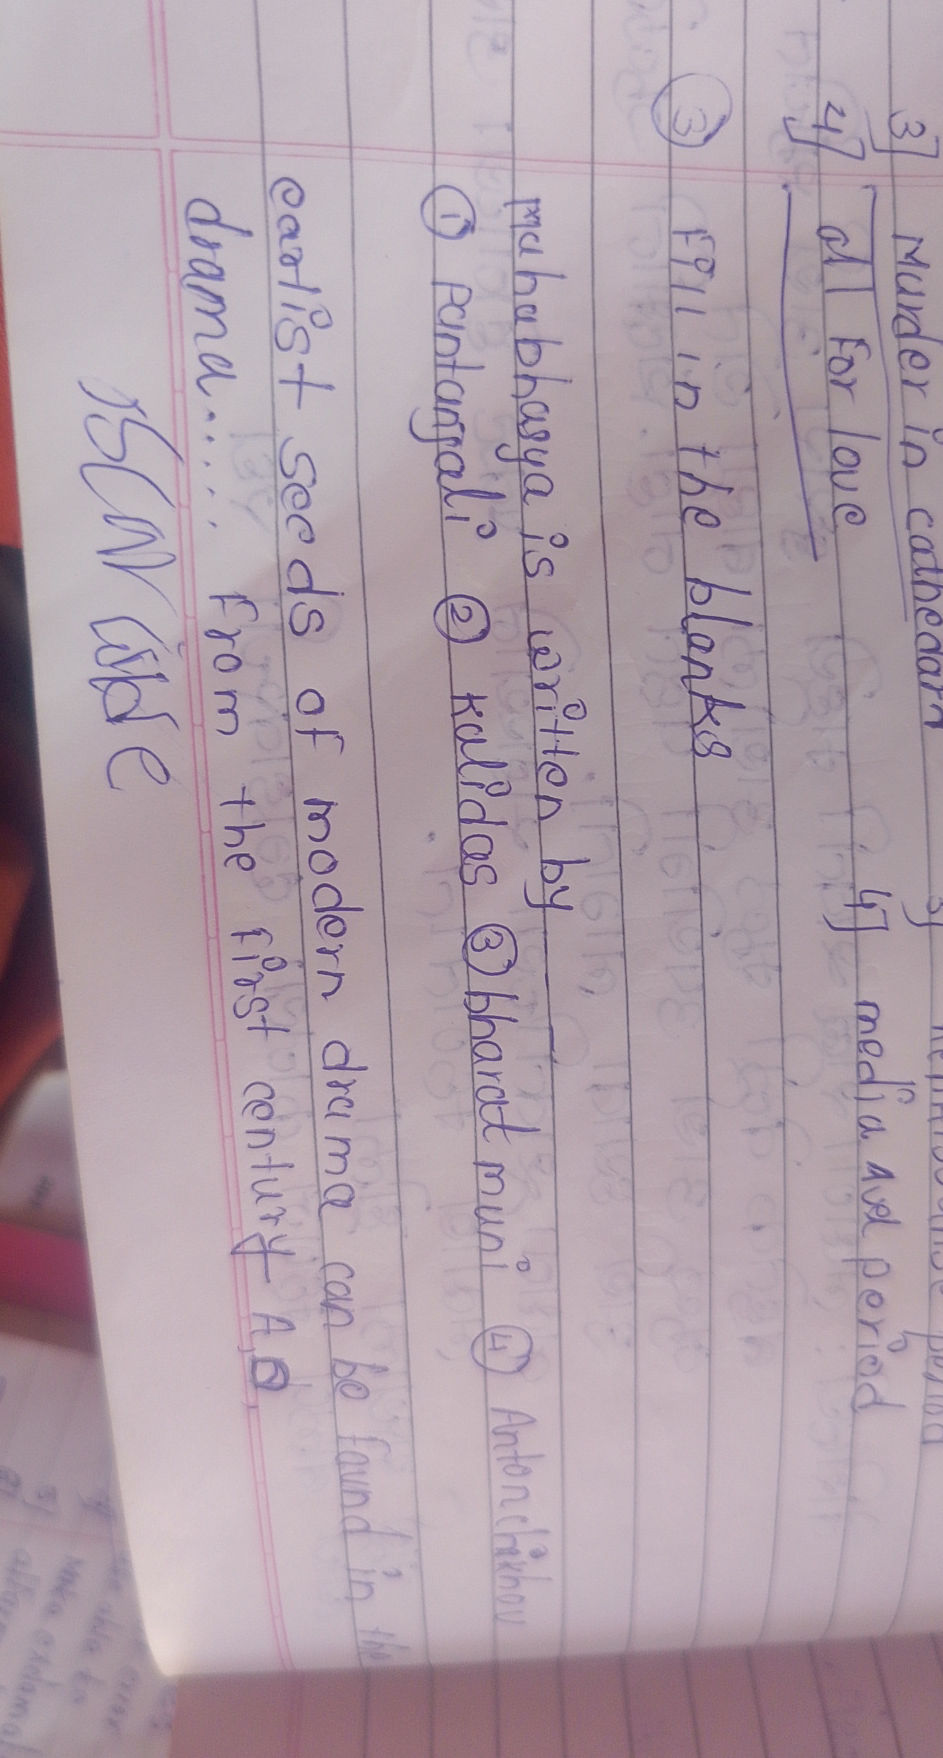 3] Murder in cathedarn
4] al for love
4] media and period
③ Fill in the blanks
mahabhasya is written by
① Pantanjali ② kalidas ③ bharat muni ④ Anton chekhov
earlist seeds of modern drama can be found in the
drama..... from the first century AD